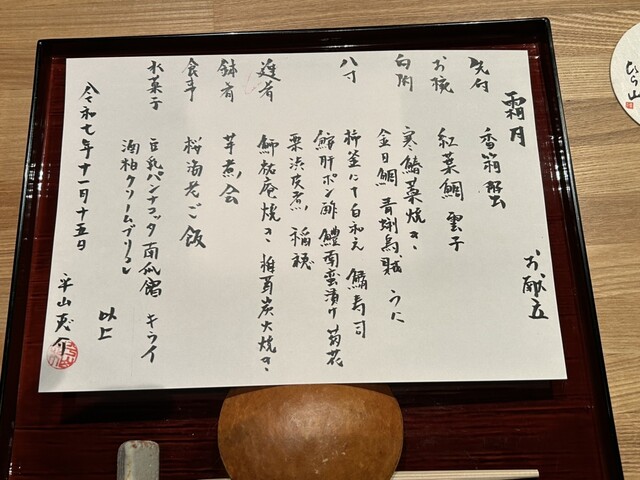 お献立
霜月
先付 香箱蟹
お椀 紅葉鯛 雲子
寒鰆藁焼き
金目鯛 烏賊 うに
八寸 柿釜にて白和え 鯖寿司
鮟肝ポン酢 鱧南蛮漬け 菊花
栗渋皮煮 稲穂
進肴 鰤祐庵焼き 椎茸炭火焼き
鉢肴 芋煮会
食事 桜海老ご飯
水菓子 豆乳パンナコッタ 南瓜餡 キウイ
酒粕クリームブリュレ
以上
令和七年十一月十五日 平山
ひら山